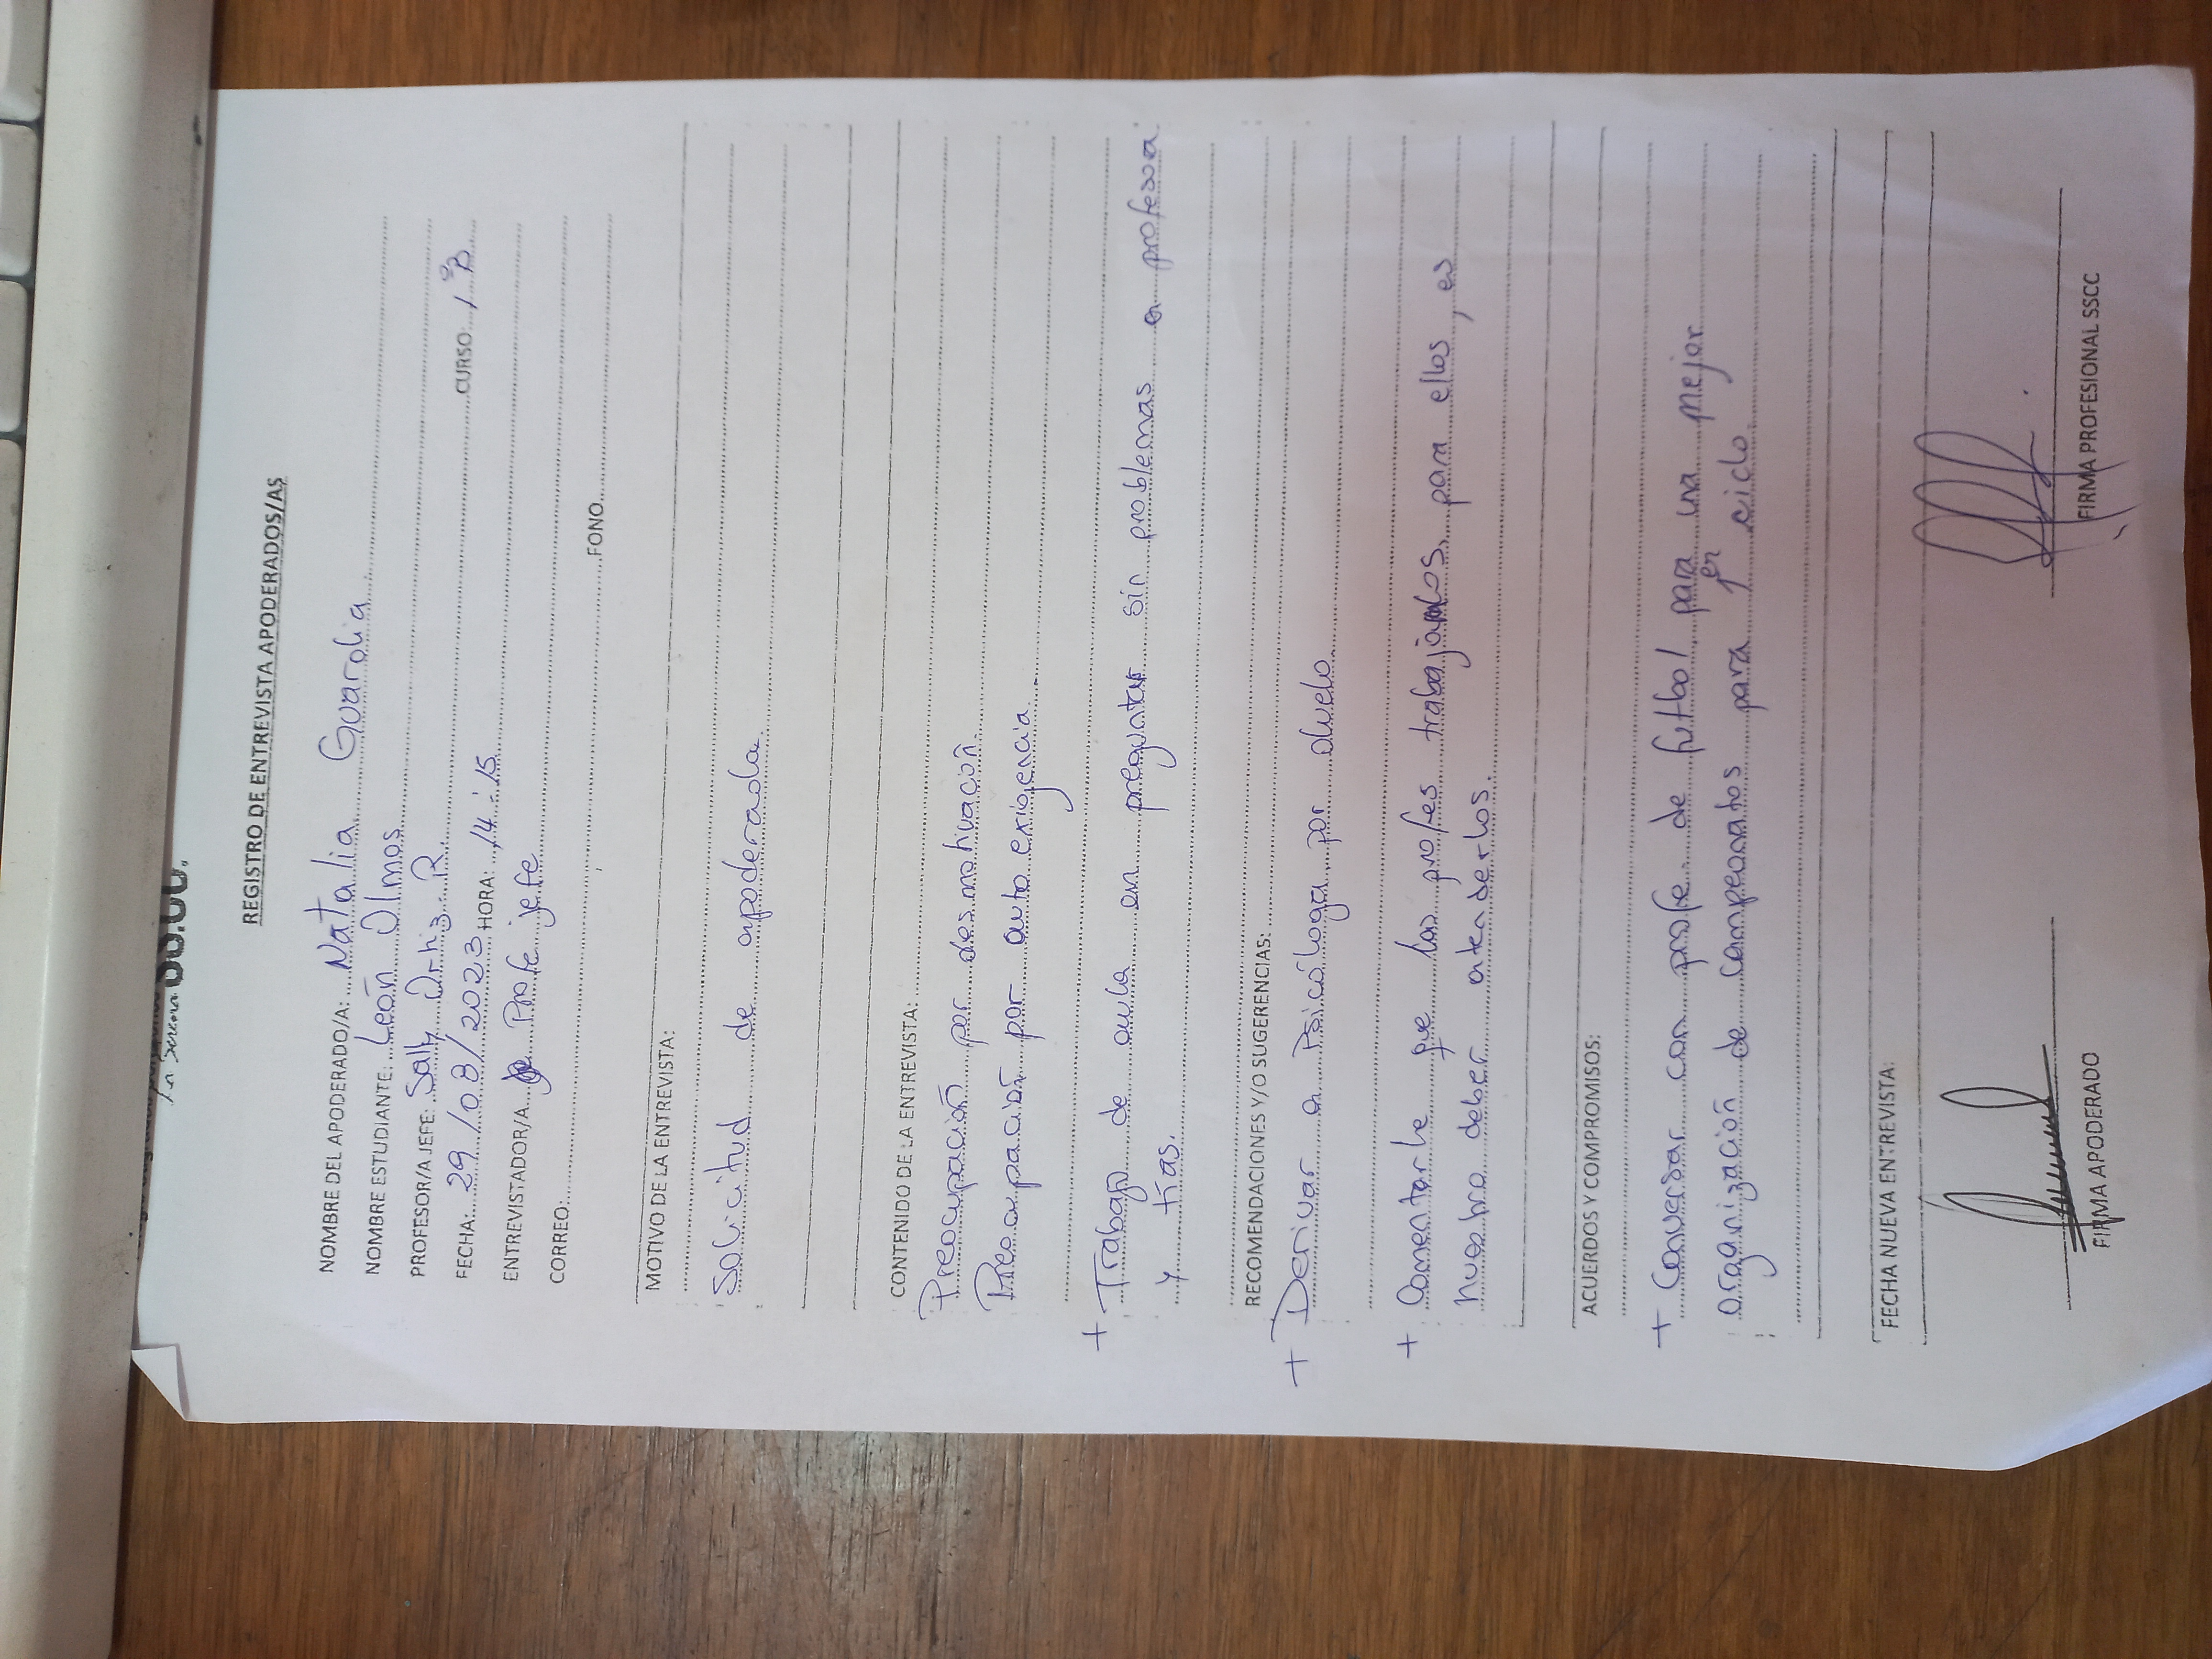 La Serena SS.CC.
REGISTRO DE ENTREVISTA APODERADOS/AS
NOMBRE DEL APODERADO/A: Natalia Guardia
NOMBRE ESTUDIANTE: León Olmos
PROFESOR/A JEFE: Sally Ortiz R.
FECHA: 29/08/2023 HORA: 14:15 CURSO: 1°B
ENTREVISTADOR/A Profe jefe
CORREO: FONO
MOTIVO DE LA ENTREVISTA:
Solicitud de apoderada.
CONTENIDO DE LA ENTREVISTA:
Preocupación por desmotivación.
Preocupación por auto exigencia.
+ Trabajo de aula en preguntar sin problemas a profesora
y tías.
RECOMENDACIONES Y/O SUGERENCIAS:
+ Derivar a Psicóloga por duelo.
+ Comentarle que las profes trabajamos para ellos, es
nuestro deber atenderlos.
ACUERDOS Y COMPROMISOS:
+ Conversar con profe de futbol para una mejor
organización de campeonatos para 1er ciclo.
FECHA NUEVA ENTREVISTA:
FIRMA APODERADO FIRMA PROFESIONAL SSCC